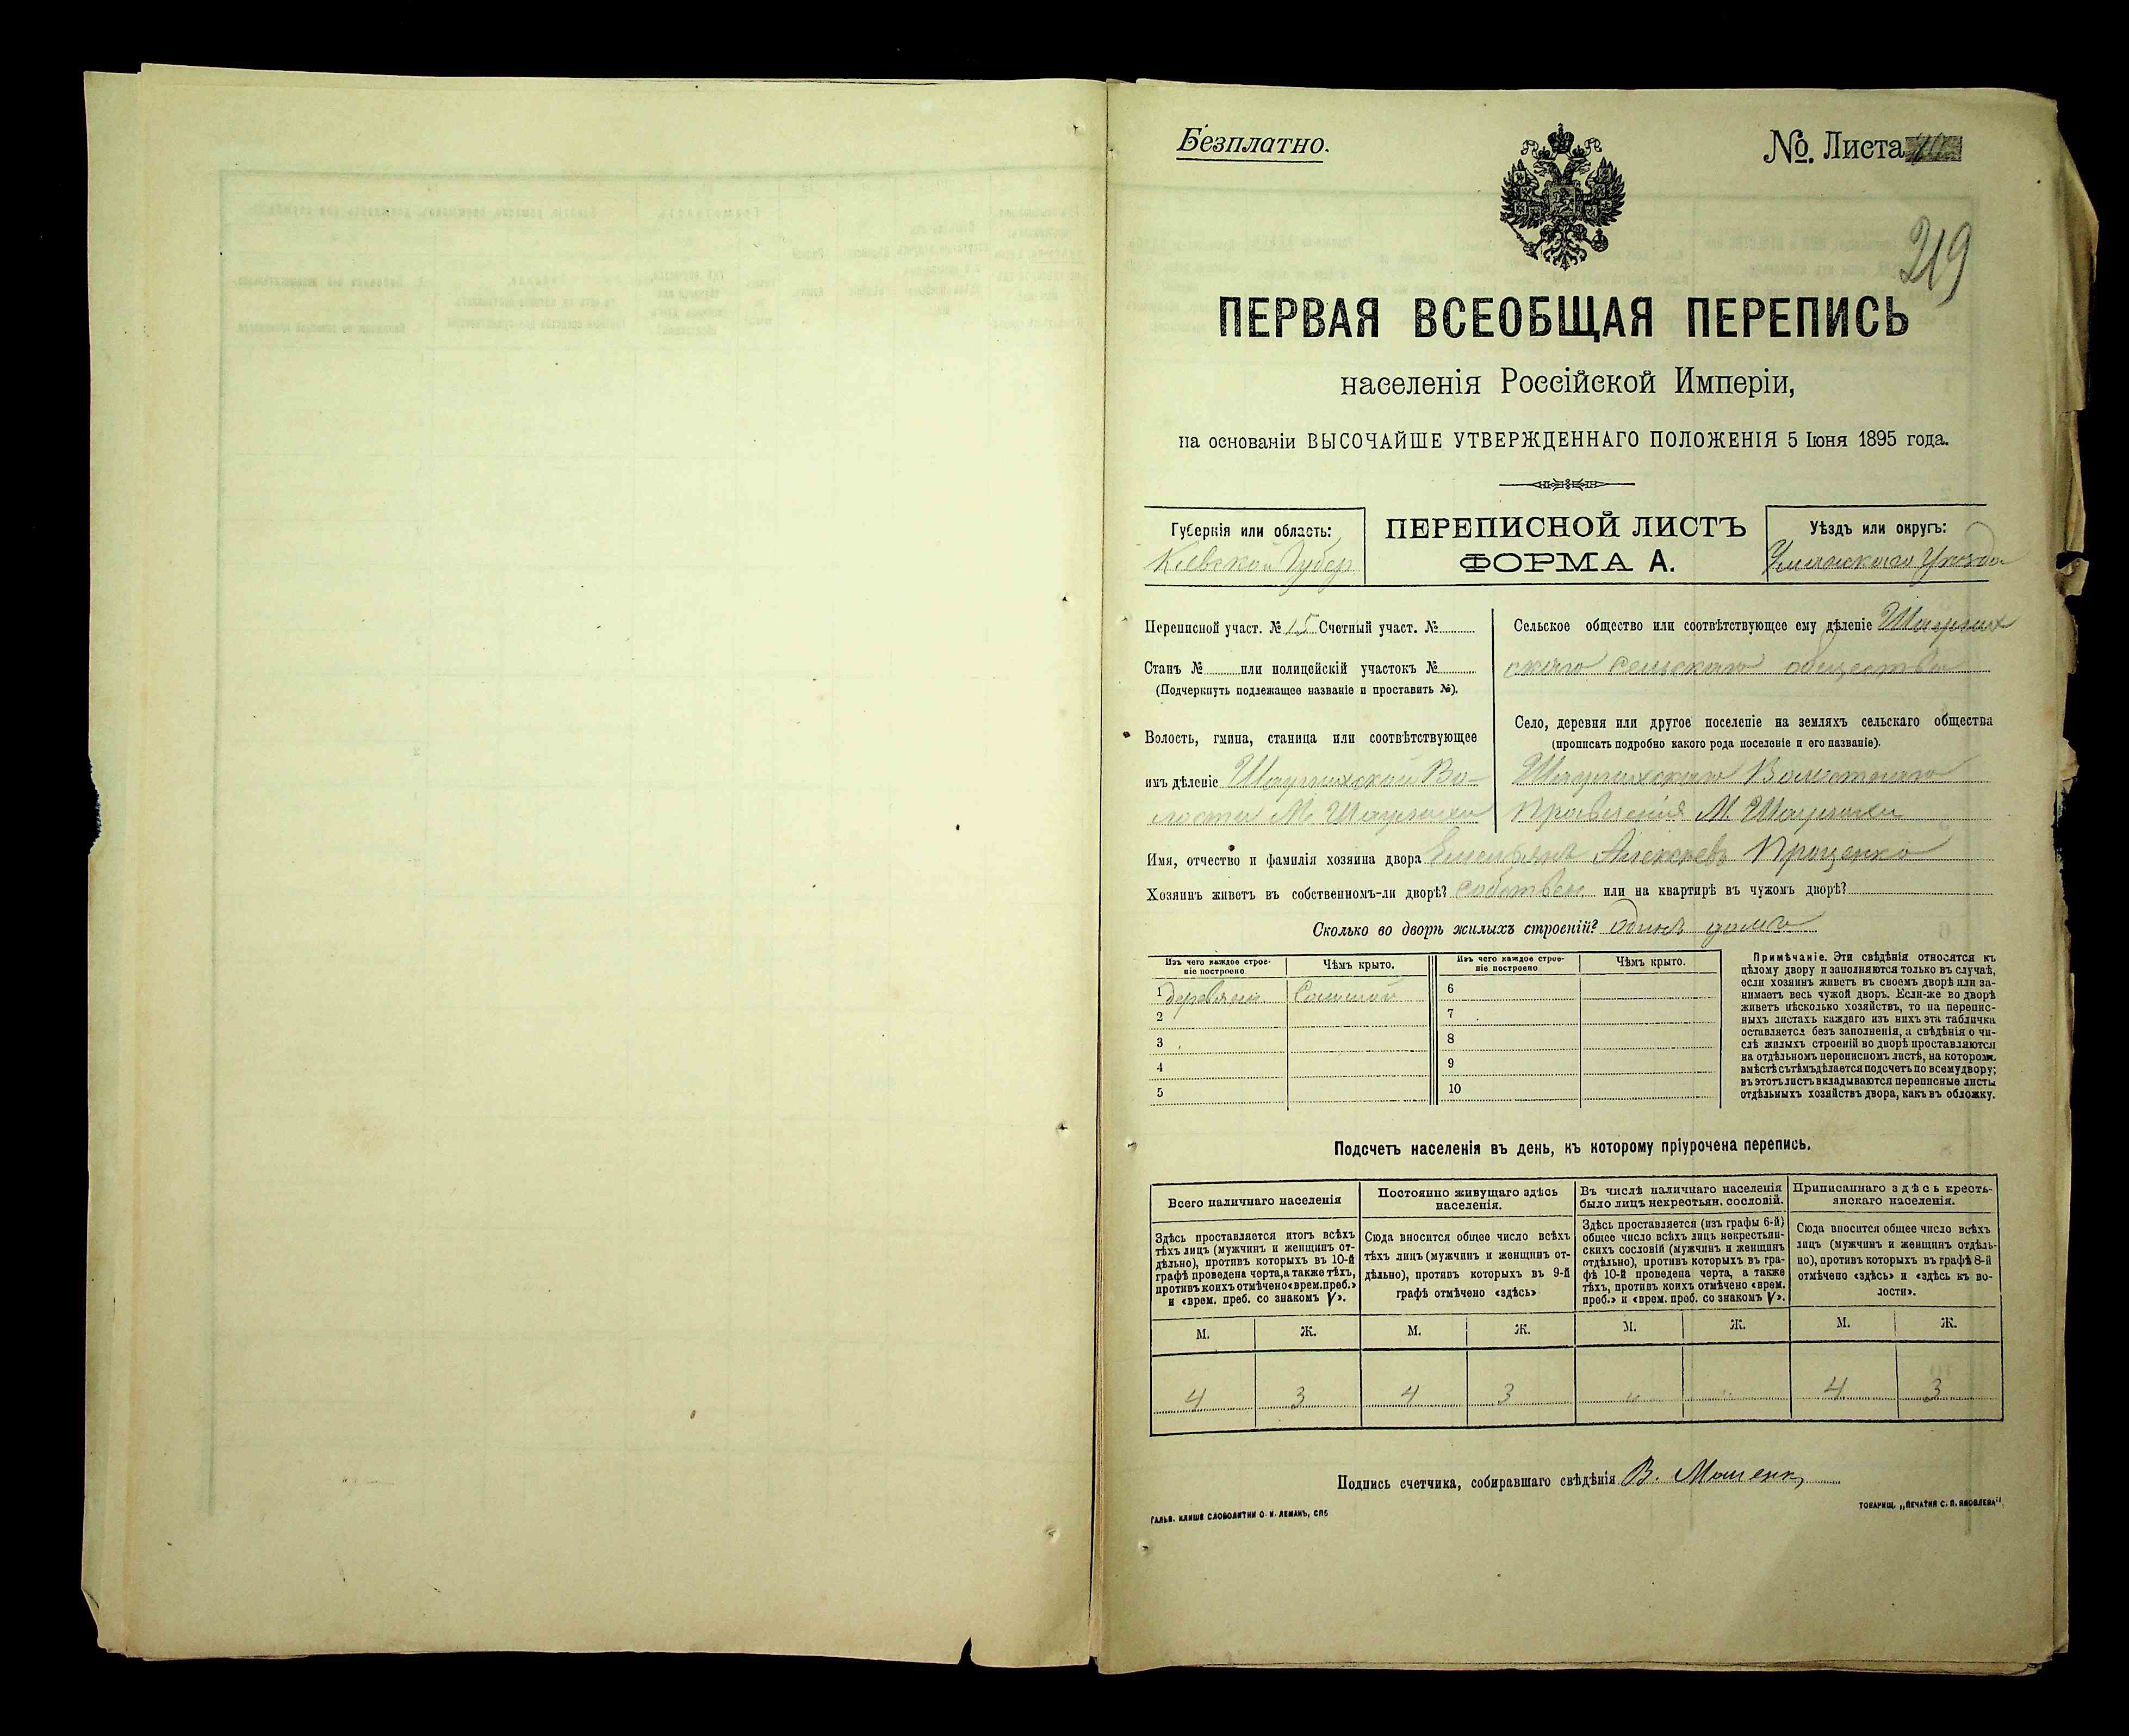 Безплатно.
№ Листа
219
ПЕРВАЯ ВСЕОБЩАЯ ПЕРЕПИСЬ
населенія Россійской Имперіи,
на основаніи ВЫСОЧАЙШЕ УТВЕРЖДЕННАГО ПОЛОЖЕНІЯ 5 Іюня 1895 года.
Губернія или область:
Кіевской Губер.
ПЕРЕПИСНОЙ ЛИСТЪ
ФОРМА А.
Уѣздъ или округъ:
Уманскаго Уѣзда
Переписной участ. № 15 Счетный участ. №
Станъ № или полицейскій участокъ №
(Подчеркнуть подлежащее названіе и проставить №).
Волость, гмина, станица или соотвѣтствующее
имъ дѣленіе Шаулихской Во-
лости М. Шаулихи
Сельское общество или соотвѣтствующее ему дѣленіе Шаулих
скаго сельскаго общества
Село, деревня или другое поселеніе на земляхъ сельскаго общества
(прописать подробно какого рода поселеніе и его названіе).
Шаулихскаго Волостнаго
Правленія М. Шаулихи
Имя, отчество и фамилія хозяина двора Емельянъ Алексѣевъ Проценко
Хозяинъ живетъ въ собственномъ-ли дворѣ? собствен. или на квартирѣ въ чужомъ дворѣ?
Сколько во дворѣ жилыхъ строеній? одинъ домъ
Изъ чего каждое строе-
ніе построено
Чѣмъ крыто.
Изъ чего каждое строе-
ніе построено
Чѣмъ крыто.
1 деревяни. Соломой
2
3
4
5
6
7
8
9
10
Примѣчаніе. Эти свѣдѣнія относятся къ
цѣлому двору и заполняются только въ случаѣ,
если хозяинъ живетъ въ своемъ дворѣ или за-
нимаетъ весь чужой дворъ. Если-же во дворѣ
живетъ нѣсколько хозяйствъ, то на перепис-
ныхъ листахъ каждаго изъ нихъ эта табличка
оставляется безъ заполненія, а свѣдѣнія о чи-
слѣ жилыхъ строеній во дворѣ проставляются
на отдѣльномъ переписномъ листѣ, на которомъ
вмѣстѣ съ тѣмъ дѣлается подсчетъ по всему двору;
въ этотъ листъ вкладываются переписные листы
отдѣльныхъ хозяйствъ двора, какъ въ обложку.
Подсчетъ населенія въ день, къ которому пріурочена перепись.
Всего наличнаго населенія
Постоянно живущаго здѣсь
населенія.
Въ числѣ наличнаго населенія
было лицъ некрестьян. сословій.
Приписаннаго здѣсь кресть-
янскаго населенія.
Здѣсь проставляется итогъ всѣхъ
тѣхъ лицъ (мужчинъ и женщинъ от-
дѣльно), противъ которыхъ въ 10-й
графѣ проведена черта, а также тѣхъ,
противъ коихъ отмѣчено «врем. преб.»
и «врем. преб. со знакомъ V».
Сюда вносится общее число всѣхъ
тѣхъ лицъ (мужчинъ и женщинъ от-
дѣльно), противъ которыхъ въ 9-й
графѣ отмѣчено «здѣсь»
Здѣсь проставляется (изъ графы 6-й)
общее число всѣхъ лицъ некрестьян-
скихъ сословій (мужчинъ и женщинъ
отдѣльно), противъ которыхъ въ гра-
фѣ 10-й проведена черта, а также
тѣхъ, противъ коихъ отмѣчено «врем.
преб.» и «врем. преб. со знакомъ V».
Сюда вносится общее число всѣхъ
лицъ (мужчинъ и женщинъ отдѣль-
но), противъ которыхъ въ графѣ 8-й
отмѣчено «здѣсь» и «здѣсь къ во-
лости».
М. Ж. М. Ж. М. Ж. М. Ж.
4 3 4 3 „ „ 4 3
Подпись счетчика, собиравшаго свѣдѣнія В.
ГАЛЬВ. КЛИШЕ СЛОВОЛИТНИ О. И. ЛЕМАНЪ, СПБ
ТОВАРИЩ. „ПЕЧАТНЯ С. П. ЯКОВЛЕВА“